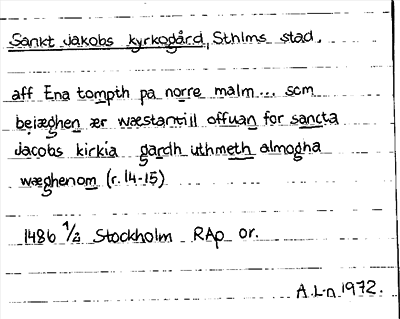 Sankt Jakobs kyrkogård, Sthlms stad.
aff Ena tompth pa norre malm... som
beiæghen ær wæstantill offuan for sancta
Jacobs kirkia gardh uthmeth almogha
wæghenom (r. 14-15)
1486 1/2 Stockholm RAp or.
A.L-n 1972.